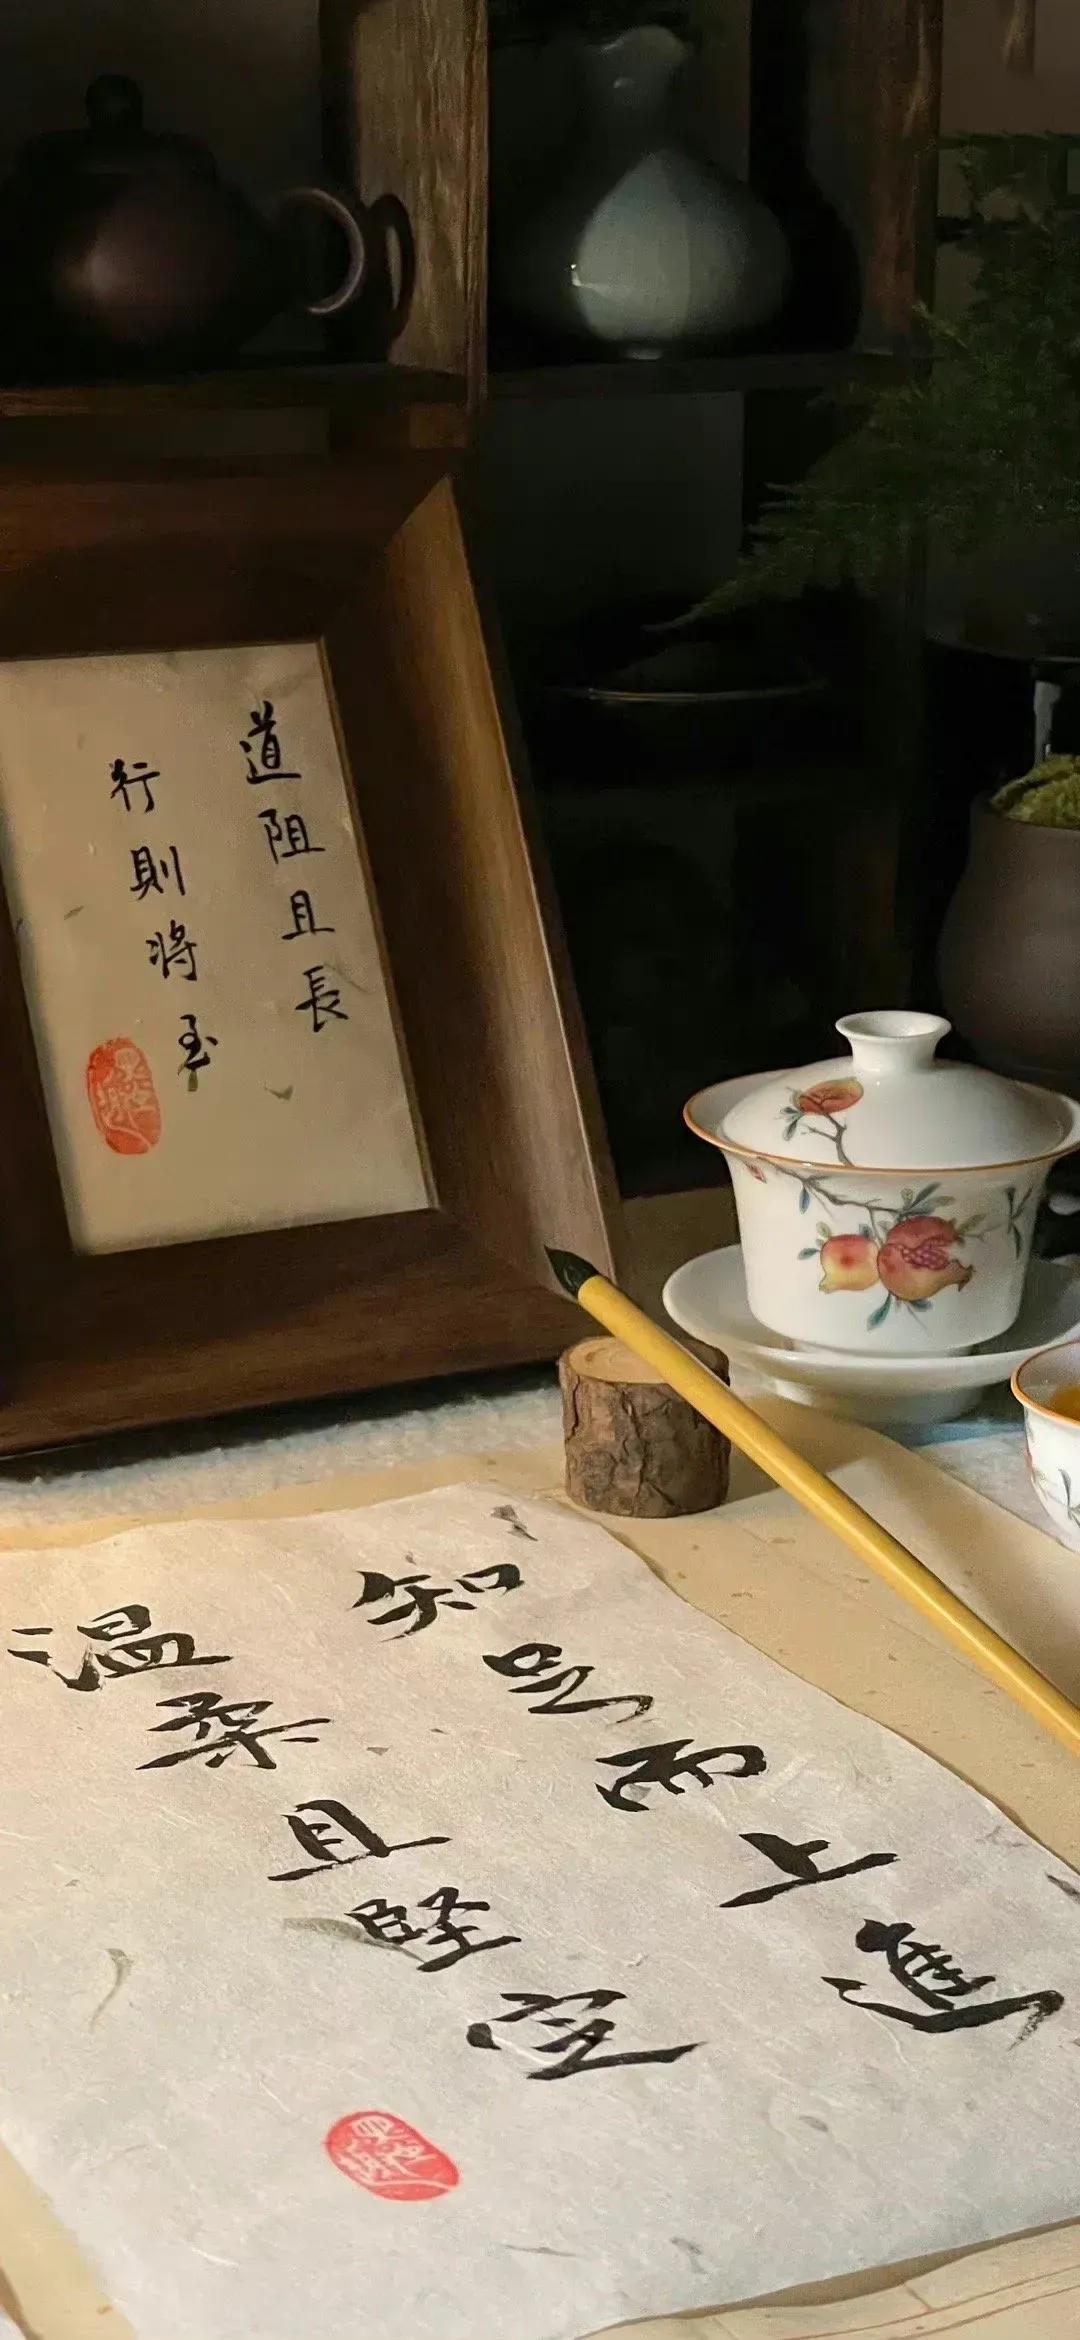 道阻且長
行則將至
知足而上進
溫柔且堅定